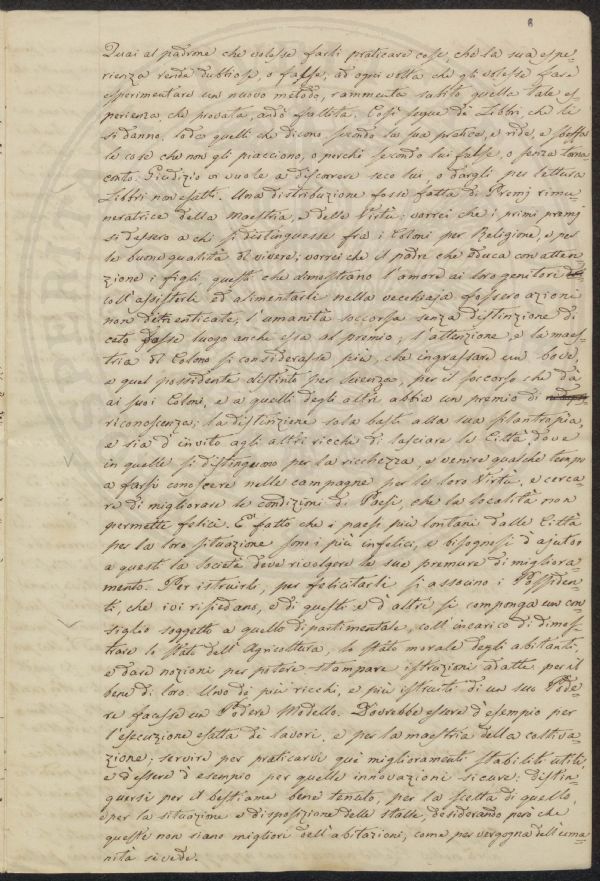 8
Guai al padrone che volesse farli praticare cose, che la sua espe=
rienza rende dubbiose, o false, ad ogni volta che gli volesse fare
esperimentare un nuovo metodo, rammenta subito quella tale es=
perienza, che provata, andò fallita. Così segue de Libbri che li
si danno, loda quelli che dicono secondo la sua pratica, e ride, e
le cose che non gli piacciono, o perchè secondo lui false, o senza torna
conto. Giudizio vi vuole a discorrere seco lui, o dargli per lettura
Libbri non esatti. Una distribuzione fosse fatta di Premj rimu=
neratrice della maestria, e della Virtù; vorrei che i primi premj
si dessero a chi si distinguesse fra i Coloni per Religione, e per
le buone qualità di vivere; vorrei che il padre che educa con atten=
zione i figli, questi che dimostrano l'amore ai loro genitori
coll'assisterli ed alimentarli nella vecchiaja fossero azioni
non dimenticate; l'umanità soccorsa senza distinzione di
ceto fosse luogo anche essa al premio; l'attenzione, e la maes=
tria del Colono si considerasse più, che ingrassare un bove,
e quel possidente distinto per scienza, per il soccorso che dà
ai suoi Coloni, e a quelli degli altri abbia un premio di
riconoscenza; la distinzione sola basti alla sua filantropia,
e sia d'invito agli altri ricchi di lasciare le Città, dove
in quelle si distinguono per la ricchezza, e venire qualche tempo
a farsi conoscere nelle campagne per le loro Virtù, e cerca=
re di migliorare le condizioni di Paesi, che la località non
permette felici. È fatto che i paesi più lontani dalle Città
per la loro situazione sono i più infelici, e bisognosi d'ajuto
a questi la Società deve rivolgere le sue premure di migliora=
mento. Per istruirli, per felicitarli si associno i Possiden=
ti, che ivi risiedano, e di questi e d'altri si componga un con=
siglio soggetto a quello dipartimentale, coll'incarico di dimos=
trare lo stato dell'Agricoltura, lo stato morale degli abitanti,
e dare nozioni per potere stampare istruzioni adatte per il
bene di loro. Uno de più ricchi, e più istruiti di un suo Pode=
re facesse un Podere Modello. Dovrebbe essere d'esempio per
l'esecuzione esatta de lavori, e per la maestria della coltiva=
zione; servire per praticarvi que miglioramenti stabiliti utili,
e d'essere d'esempio per quelle innovazioni sicure; distin=
guersi per il bestiame bene tenuto, per la scelta di quello,
e per la situazione e disposizione delle stalle, desiderando però che
queste non siano migliori dell'abitazioni, come per vergogna dell'uma=
nità si vede.